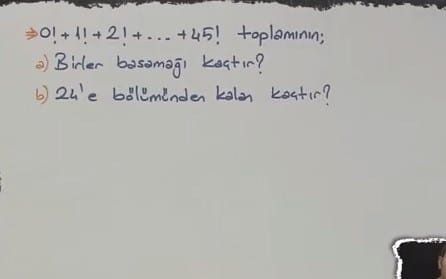 ⇒0!+1!+2!+...+45! toplamının;
a) Birler basamağı kaçtır?
b) 24'e bölümünden kalan kaçtır?